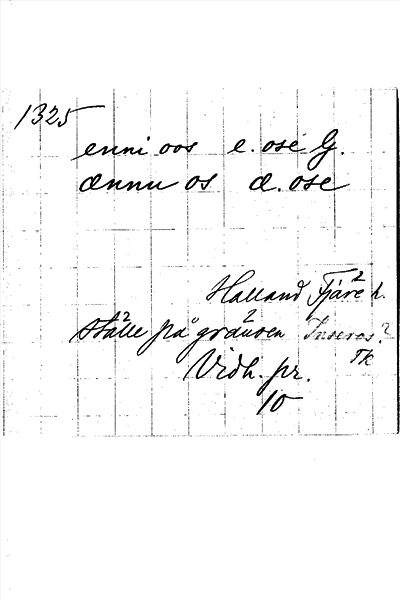 1325
enni oos e. ose G.
ænnu os æ. ose
Halland Fjäre h.
ställe på gränsen Inseros?
Tk
Vidh. pr.
10